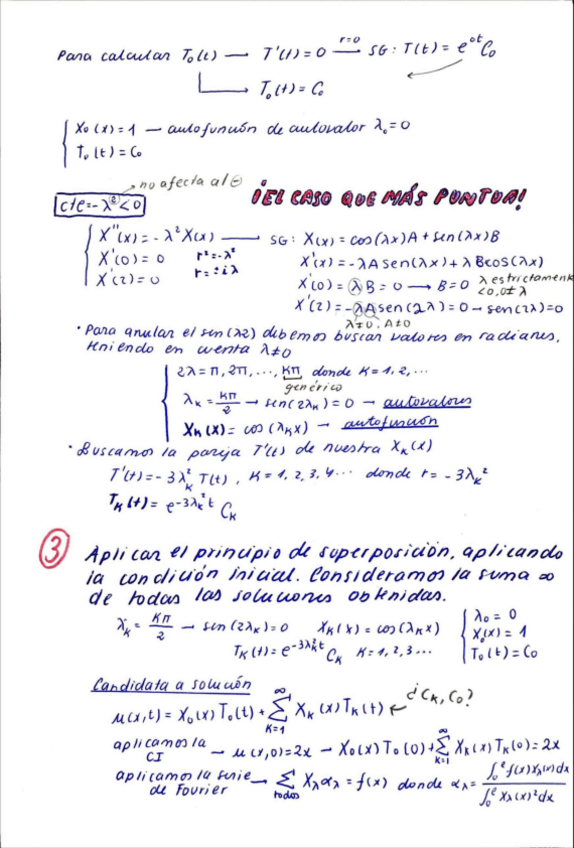 Para calcular T₀(t) → T'(t) = 0 —r=0→ SG: T(t) = e^{0t} C₀
→ T₀(t) = C₀
{ X₀(x) = 1 — autofunción de autovalor λ₀ = 0
T₀(t) = C₀
no afecta al ⊖
cte = -λ² < 0 ¡EL CASO QUE MÁS PUNTUA!
{ X''(x) = -λ² X(x) → SG: X(x) = cos(λx)A + sen(λx)B
X'(0) = 0 r² = -λ² X'(x) = -λA sen(λx) + λB cos(λx)
X'(2) = 0 r = ± iλ X'(0) = λB = 0 → B = 0 λ estrictamente <0, 0≠λ
X'(2) = -λA sen(2λ) = 0 → sen(2λ) = 0
λ≠0. A≠0
· Para anular el sen(λ2) debemos buscar valores en radianes,
teniendo en cuenta λ≠0
{ 2λ = π, 2π, ..., kπ donde k = 1, 2, ...
genérico
λₖ = kπ/2 → sen(2λₖ) = 0 → autovalores
Xₖ(x) = cos(λₖx) → autofunción
· Buscamos la pareja T'(t) de nuestra Xₖ(x)
T'(t) = -3λₖ² T(t), k = 1, 2, 3, 4... donde r = -3λₖ²
Tₖ(t) = e^{-3λₖ²t} Cₖ
③ Aplicar el principio de superposición, aplicando
la condición inicial. Consideramos la suma ∞
de todas las soluciones obtenidas.
λₖ = kπ/2 → sen(2λₖ) = 0 Xₖ(x) = cos(λₖx) { λ₀ = 0
Tₖ(t) = e^{-3λₖ²t} Cₖ k = 1, 2, 3... X₀(x) = 1
T₀(t) = C₀
Candidata a solución ¿Cₖ, C₀?
u(x,t) = X₀(x) T₀(t) + ∑_{k=1}^{∞} Xₖ(x) Tₖ(t) ←
aplicamos la CI → u(x,0) = 2x → X₀(x) T₀(0) + ∑_{k=1}^{∞} Xₖ(x) Tₖ(0) = 2x
aplicamos la serie de Fourier → ∑_{todos} X_λ α_λ = f(x) donde α_λ = ∫₀^ℓ f(x) X_λ(x) dx / ∫₀^ℓ X_λ(x)² dx